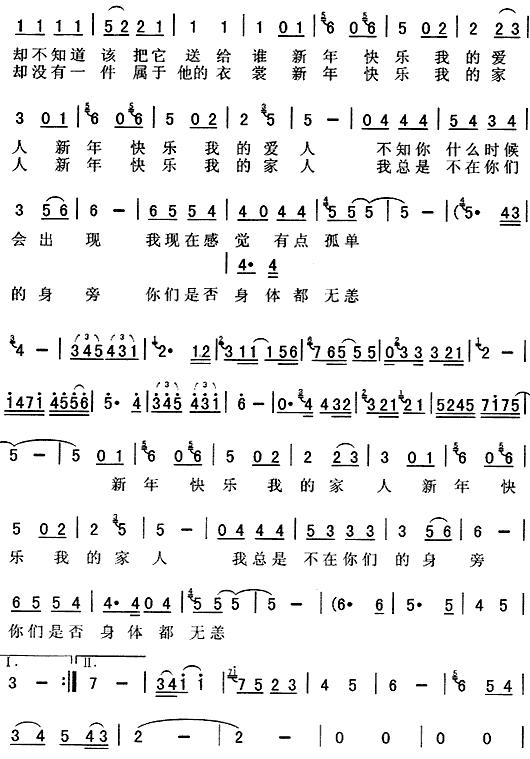 1 1 1 1 | 5 2 2 1 | 1 1 | 1 0 1 | 6 0 6 | 5 0 2 | 2 2 3 |
却不知道 该 把它 送 给 谁 新 年 快 乐 我 的 爱
却没有一 件 属于 他的 衣 裳 新 年 快 乐 我 的 家
3 0 1 | 6 0 6 | 5 0 2 | 2 5 | 5 - | 0 4 4 4 | 5 4 3 4 |
人 新 年 快 乐 我 的 爱 人 不知你 什么时候
人 新 年 快 乐 我 的 家 人 我总是 不在你们
3 5 6 | 6 - | 6 5 5 4 | 4 0 4 4 | 5 5 5 | 5 - | (5· 4 3 |
会 出 现 我现在感 觉 有点 孤单
| 4· 4
的 身 旁 你们是否 身 体都 无恙
4 - | 3 4 5 4 3 1 | 2· 1 2 | 3 1 1 1 5 6 | 7 6 5 5 5 | 0 3 3 3 2 1 | 2 - |
1 4 7 1 4 5 5 6 | 5· 4 | 3 4 5 4 3 1 | 6 - | 0· 3 4 4 3 2 | 3 2 1 2 1 | 5 2 4 5 7 1 7 5 |
5 - | 5 0 1 | 6 0 6 | 5 0 2 | 2 2 3 | 3 0 1 | 6 0 6 |
新 年 快 乐 我 的 家 人 新 年 快
5 0 2 | 2 5 | 5 - | 0 4 4 4 | 5 3 3 3 | 3 5 6 | 6 - |
乐 我 的 家 人 我总是 不在你们 的 身 旁
6 5 5 4 | 4· 4 0 4 | 5 5 5 | 5 - | (6· 6 | 5· 5 | 4 5 |
你们是否 身 体都 无恙
I. II.
3 - :‖ 7 - | 3 4 1 1 | 7 5 2 3 | 4 5 | 6 - | 6 5 4 |
3 4 5 4 3 | 2 - | 2 - | 0 0 | 0 0 |